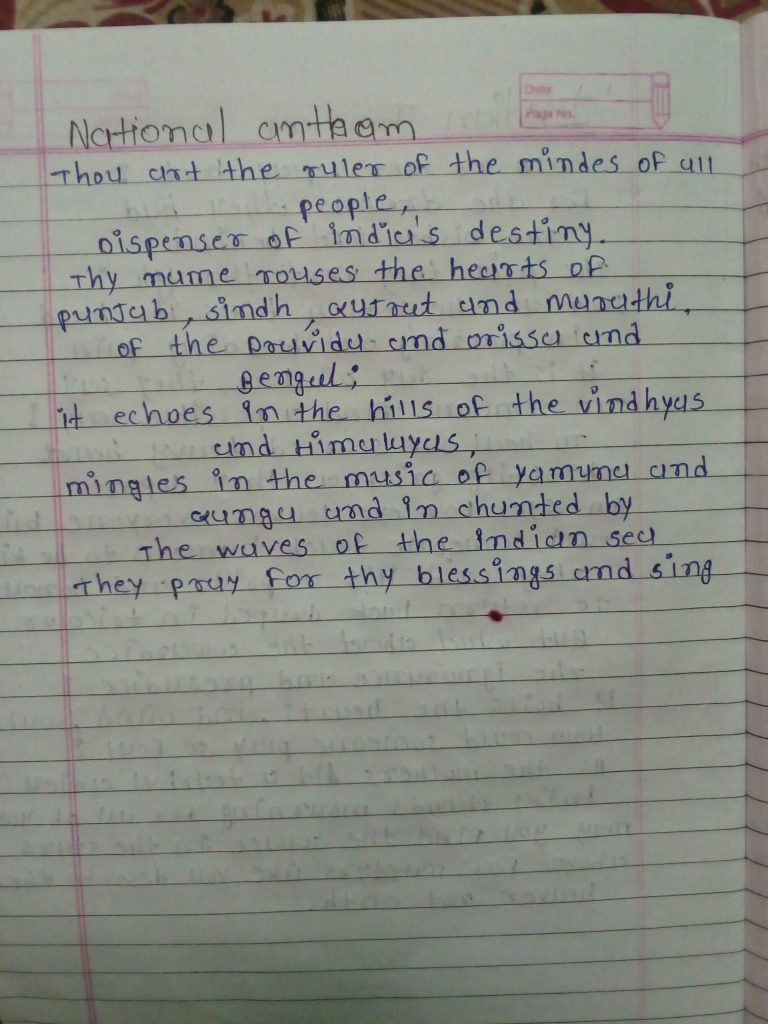 Date: / /
Page No.
National antheam
Thou art the ruler of the mindes of all
people,
Dispenser of india's destiny.
Thy name rouses the hearts of
punjab, sindh, Gujrat and marathi,
of the Dravida and orissa and
Bengal;
it echoes in the hills of the vindhyas
and Himalayas,
mingles in the music of yamuna and
Gunga and in chanted by
The waves of the indian sea
They pray for thy blessings and sing